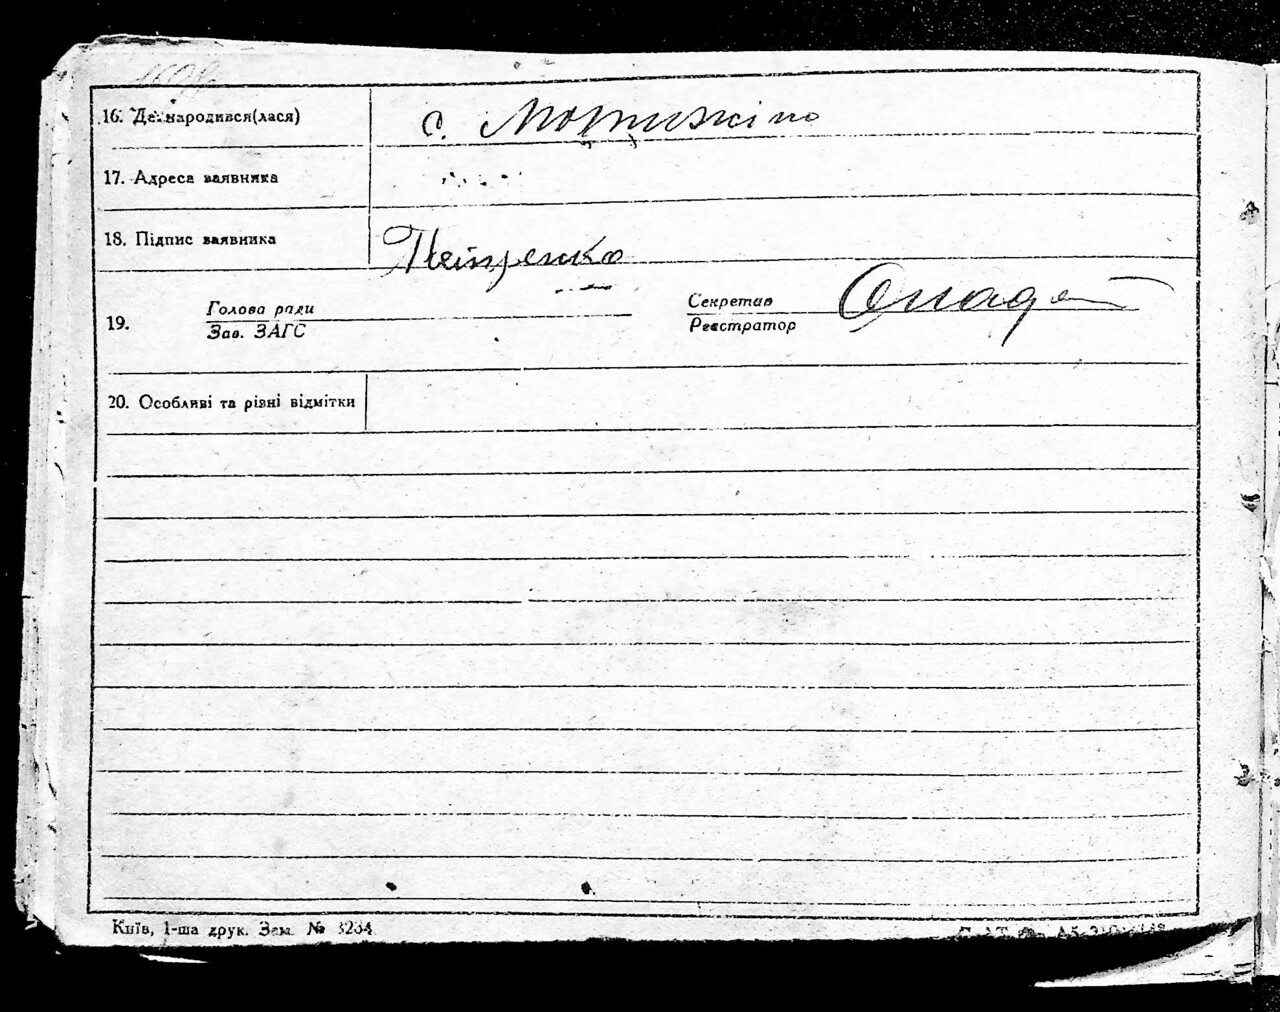 16. Де народився(лася) с. Мотижино
17. Адреса заявника
18. Підпис заявника
19. Голова ради
Зав. ЗАГС
Секретар
Реєстратор
20. Особливі та різні відмітки
Київ, 1-ша друк. Зам. № 3234